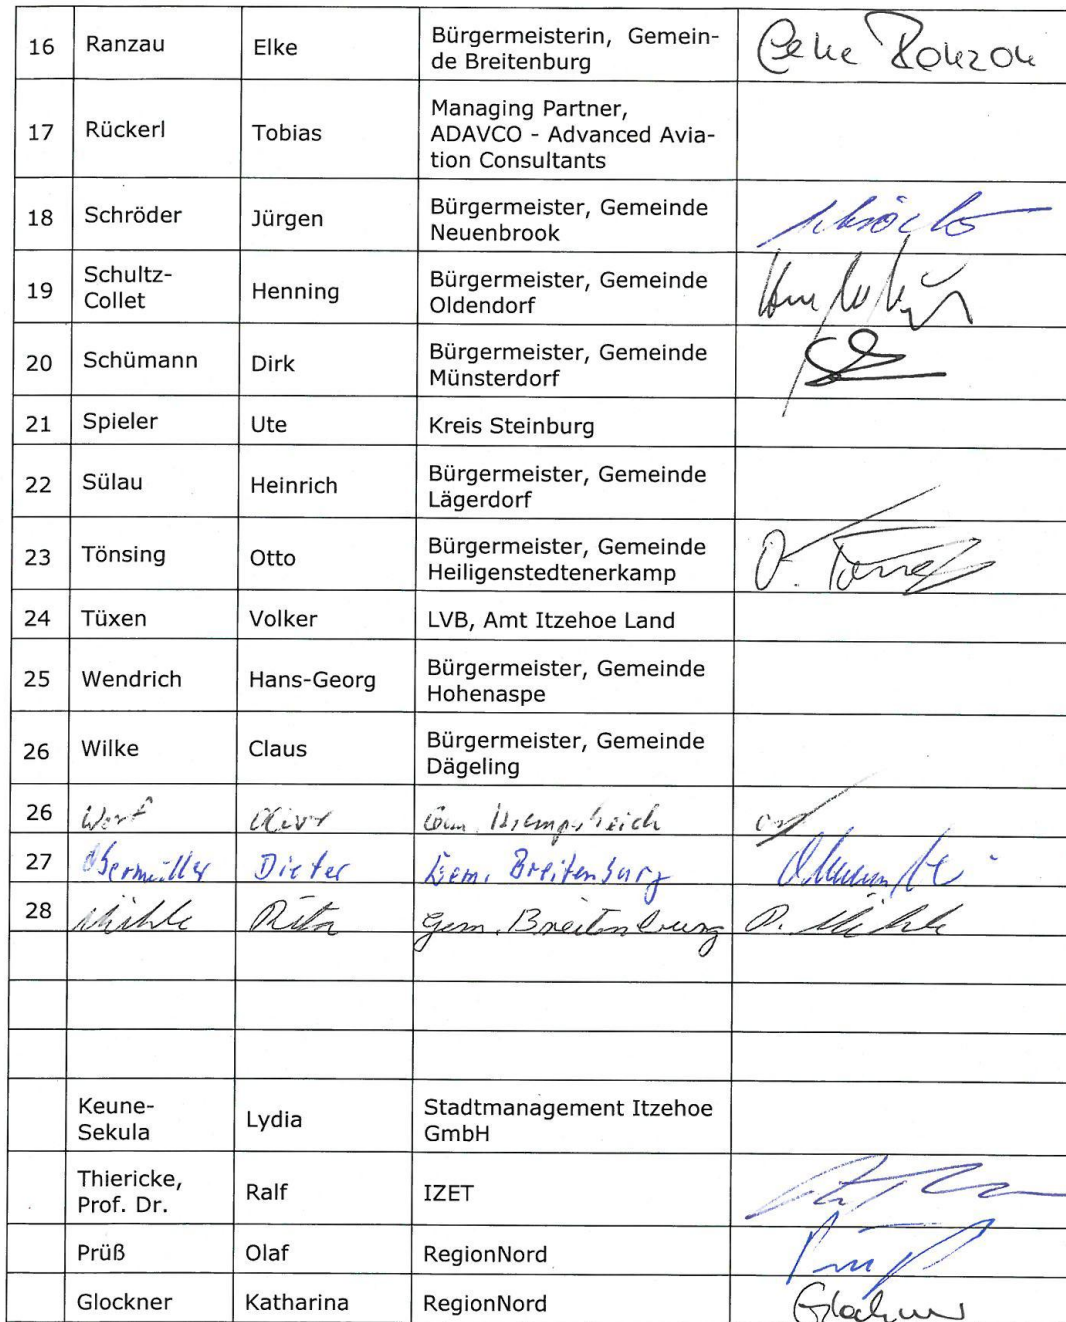 16 Ranzau Elke Bürgermeisterin, Gemein-
de Breitenburg
Elke Ranzau
17 Rückerl Tobias Managing Partner,
ADAVCO - Advanced Avia-
tion Consultants
18 Schröder Jürgen Bürgermeister, Gemeinde
Neuenbrook
Schröder
19 Schultz-
Collet Henning Bürgermeister, Gemeinde
Oldendorf
20 Schümann Dirk Bürgermeister, Gemeinde
Münsterdorf
21 Spieler Ute Kreis Steinburg
22 Sülau Heinrich Bürgermeister, Gemeinde
Lägerdorf
23 Tönsing Otto Bürgermeister, Gemeinde
Heiligenstedtenerkamp
24 Tüxen Volker LVB, Amt Itzehoe Land
25 Wendrich Hans-Georg Bürgermeister, Gemeinde
Hohenaspe
26 Wilke Claus Bürgermeister, Gemeinde
Dägeling
26 Oliver Gem.
27 Obermüller Dieter Gem. Breitenburg
28 Mühle Rita Gem. Breitenburg R. Mühle
Keune-
Sekula Lydia Stadtmanagement Itzehoe
GmbH
Thiericke,
Prof. Dr. Ralf IZET
Prüß Olaf RegionNord
Glockner Katharina RegionNord Glockner